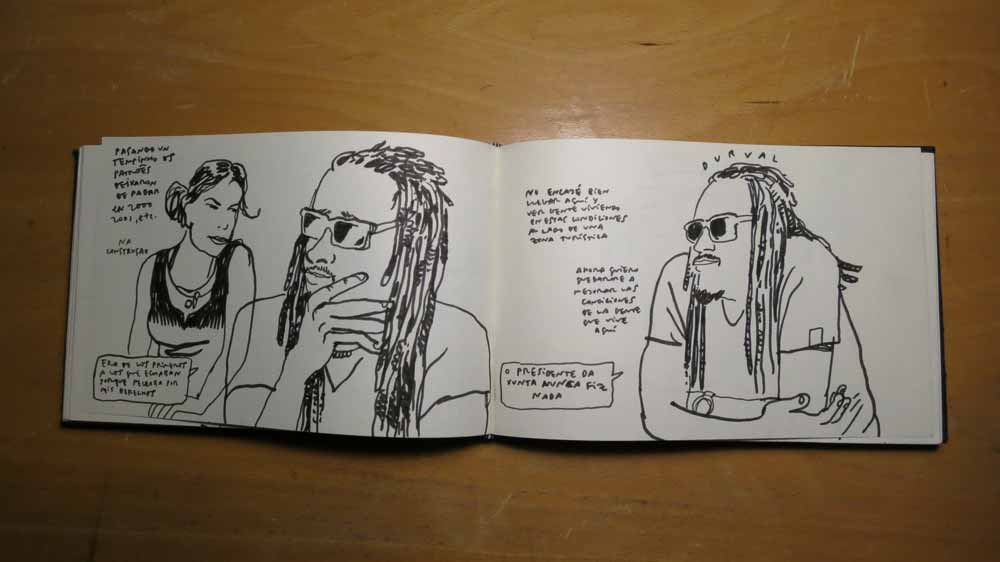 PASANDO UN
TEMPINHO OS
PATRÕES
DEIXARON
DE PAGAR
EN 2000
2001, ETC.
NA
CONSTRUSÃO
ERA DE LOS PRIMEROS
A LOS QUE ECHABAN
PORQUE PELEABA POR
MIS DERECHOS
DURVAL
NO ENCAJÉ BIEN
LLEGAR AQUÍ Y
VER GENTE VIVIENDO
EN ESTAS CONDICIONES
AL LADO DE UNA
ZONA TURÍSTICA
AHORA QUIERO
QUEDARME A
MEJORAR LAS
CONDICIONES
DE LA GENTE
QUE VIVE
AQUÍ
O PRESIDENTE DA
XUNTA NUNCA FIZ
NADA